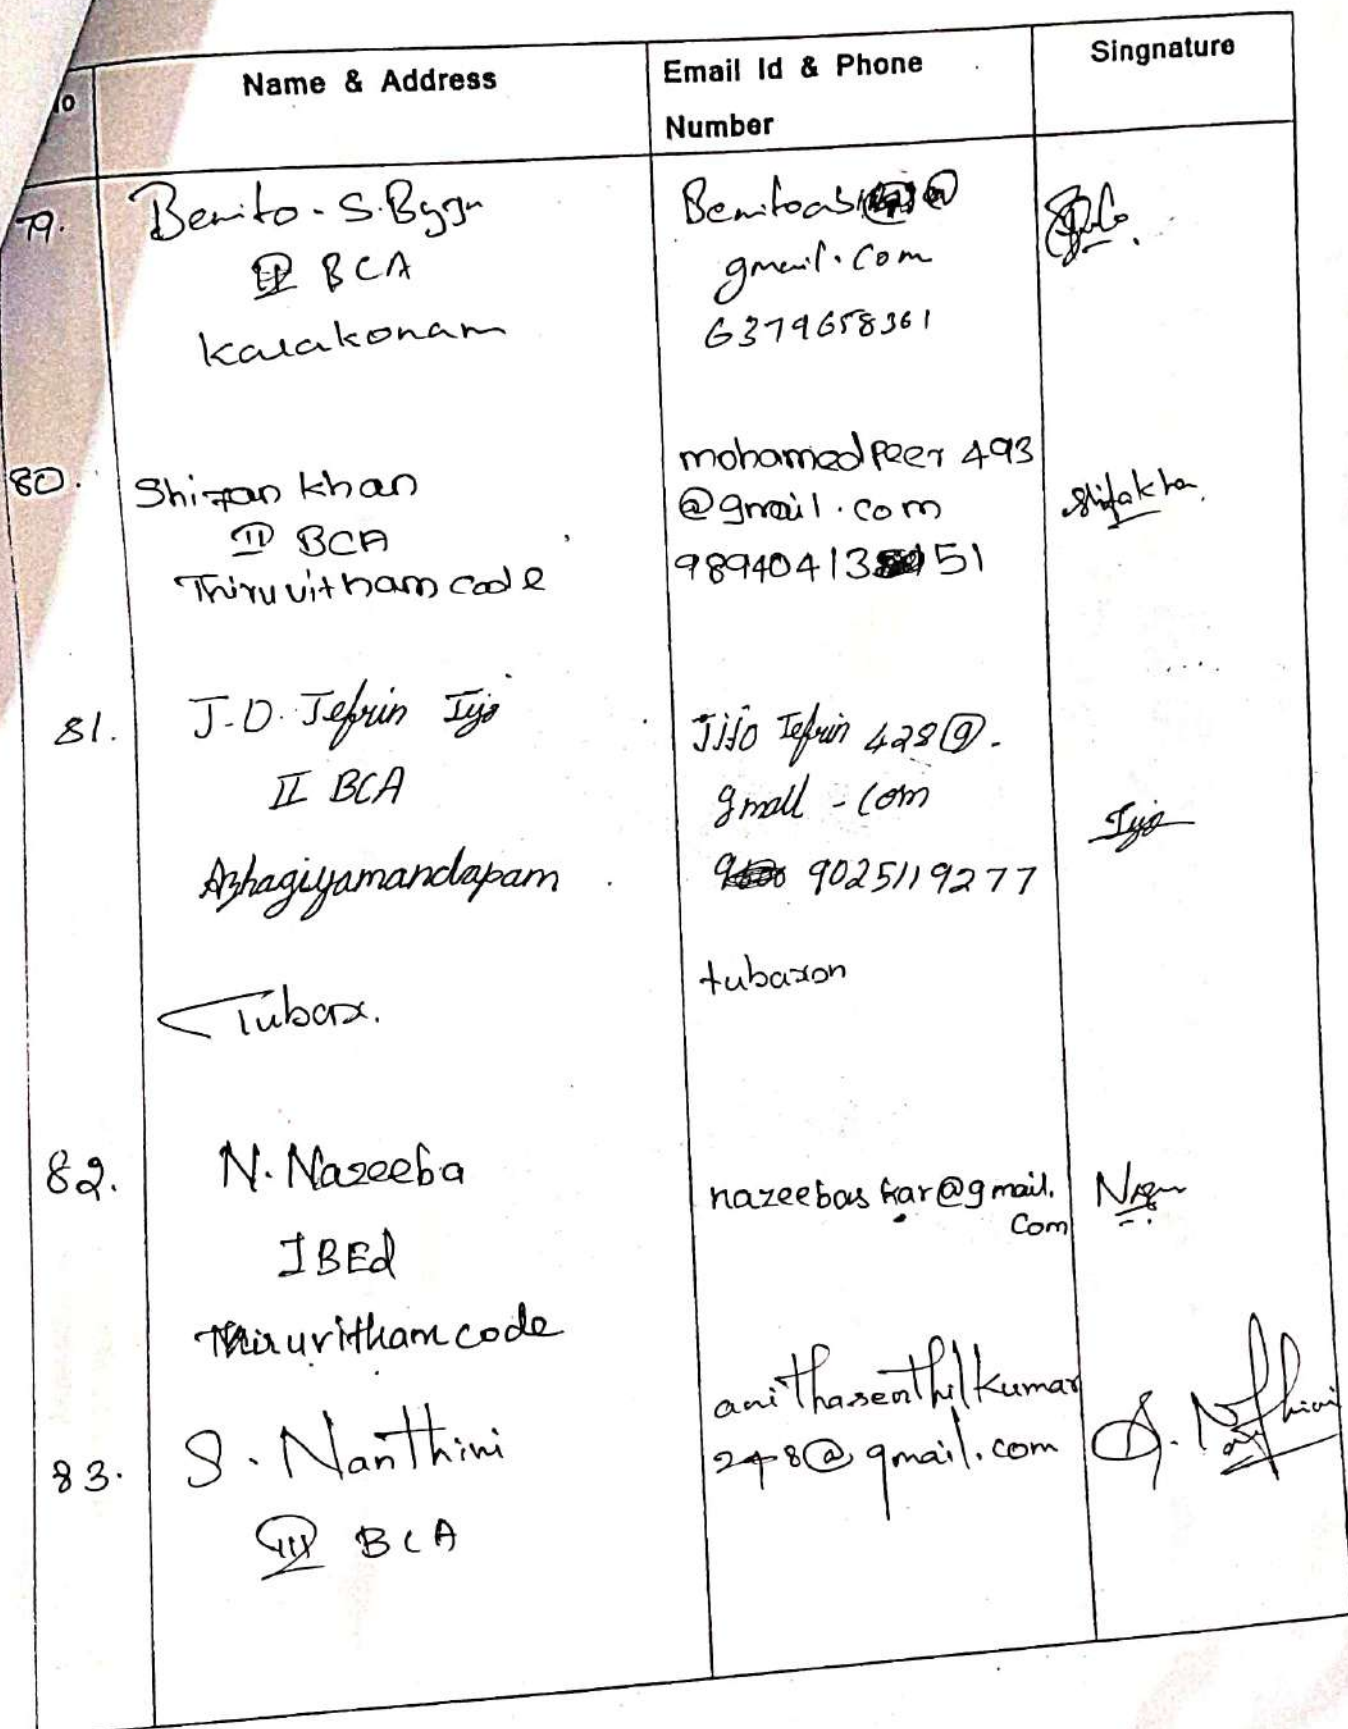 No
Name & Address
Email Id & Phone
Number
Singnature
79.
Benito. S. Byju
II BCA
Karakonam
gmail.com
6379658361
80.
Shifan khan
II BCA
Thiruvithamcode
mohamedPeer 493
@gmail.com
98940413 51
81.
J.D. Jefrin Jijo
II BCA
Azhagiyamandapam
Jijo Jefrin 428@.
gmail - com
9025119277
Jijo
Tubax.
tubaxon
82.
N. Nazeeba
I BEd
Thiruvithamcode
nazeebaskar@gmail.
Com
83.
S. Nanthini
III BCA
anithasenthilkumar
248@gmail.com
S. Nanthini